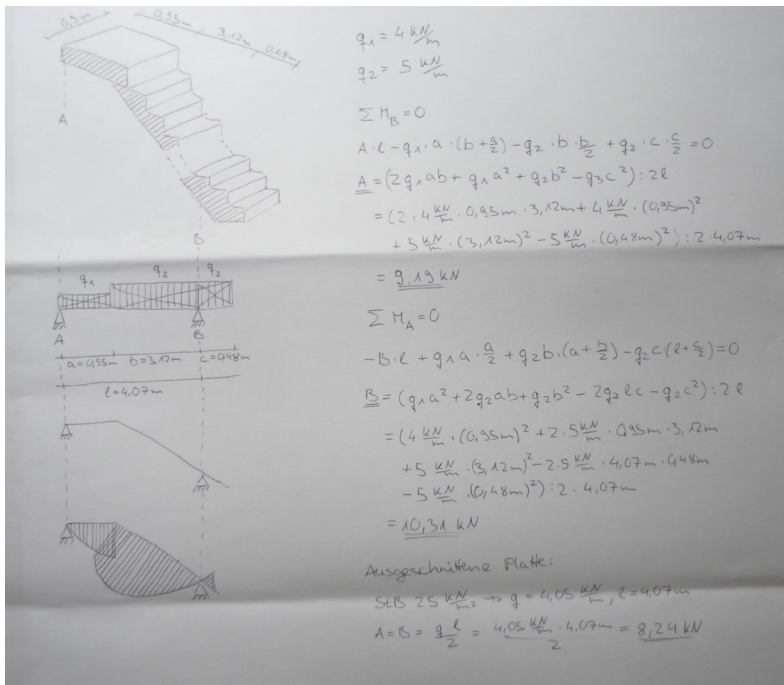 0,9m
0,95m
3,12m
0,48m
A
B
q₁
q₂
q₂
A
B
a=0,95m b=3,12m c=0,48m
l=4,07m
q₁ = 4 kN/m
q₂ = 5 kN/m
∑ M_B = 0
A·l - q₁·a·(b+a/2) - q₂·b·b/2 + q₂·c·c/2 = 0
A = (2q₁ab + q₁a² + q₂b² - q₃c²) : 2l
= (2·4 kN/m · 0,95m · 3,12m + 4 kN/m · (0,95m)²
+ 5 kN/m · (3,12m)² - 5 kN/m · (0,48m)²) : 2·4,07m
= 9,19 kN
∑ M_A = 0
-B·l + q₁a·a/2 + q₂b·(a+b/2) - q₂c(l+c/2) = 0
B = (q₁a² + 2q₂ab + q₂b² - 2q₂lc - q₂c²) : 2l
= (4 kN/m · (0,95m)² + 2·5 kN/m · 0,95m · 3,12m
+ 5 kN/m · (3,12m)² - 2·5 kN/m · 4,07m · 0,48m
- 5 kN/m · (0,48m)²) : 2·4,07m
= 10,31 kN
Ausgeschnittene Platte:
StB 25 kN/m² → g = 4,05 kN/m, l = 4,07m
A = B = g l/2 = 4,05 kN/m · 4,07m / 2 = 8,24 kN